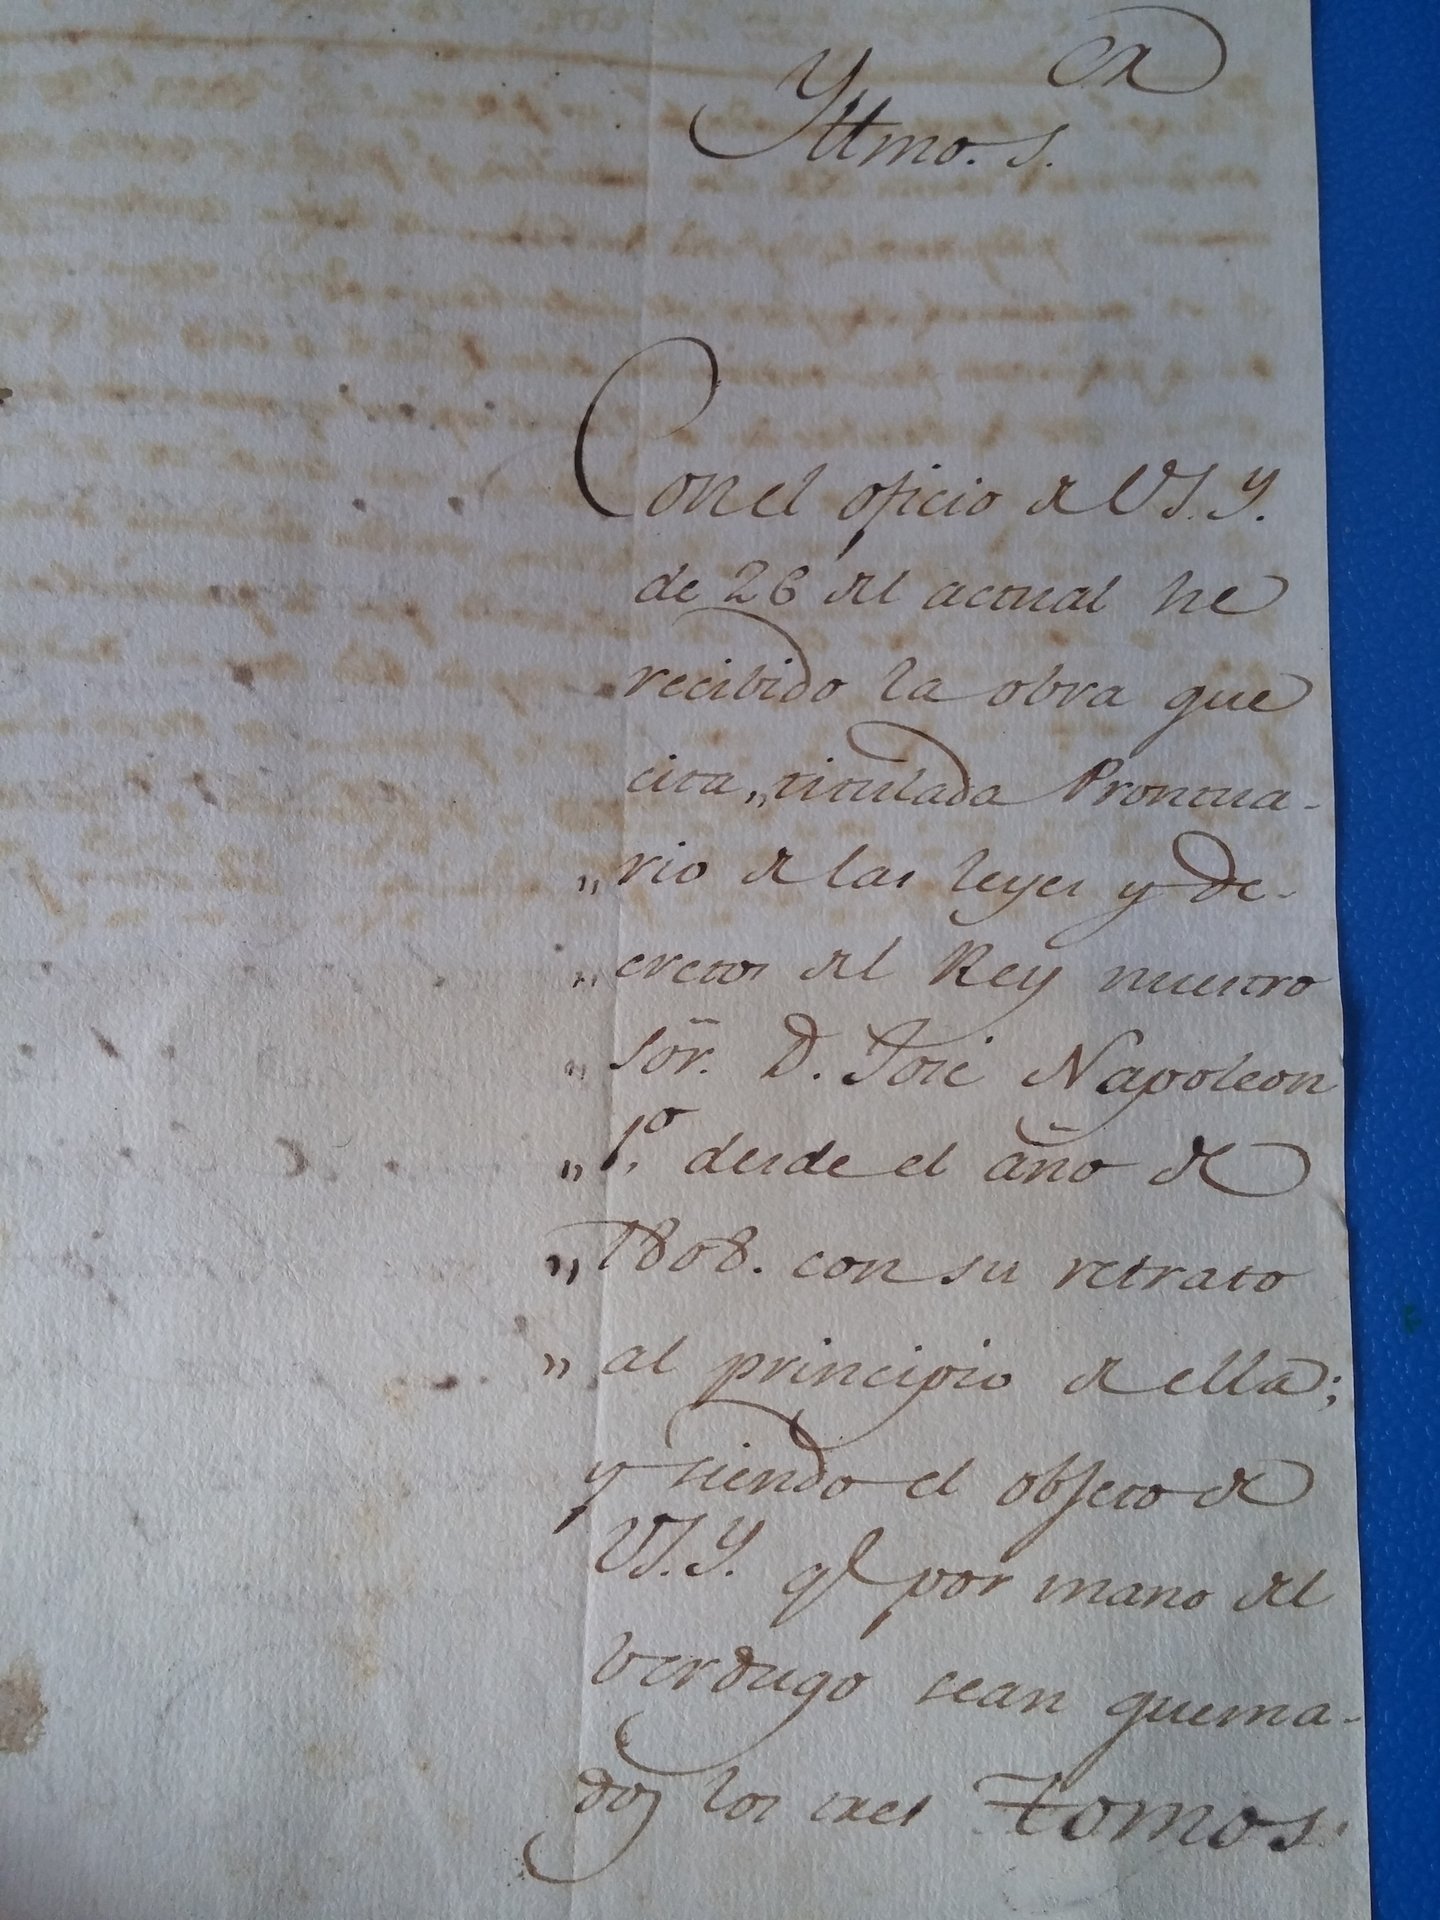 Yllmo. S.
Con el oficio de VS. Y.
de 26 del actual he
recibido la obra que
cita „titulada Prontua-
„rio de las leyes y de-
„cretos del Rey nuestro
„Sõr. D. José Napoleon
„1.º desde el año de
„1808. con su retrato
„al principio de ella;
y siendo el objeto de
VS. Y. q.e por mano del
verdugo sean quema-
dos los tres Tomos.